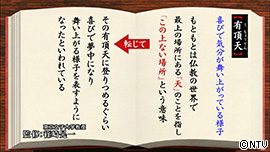 【有頂天】
喜びで気分が舞い上がっている様子
もともとは仏教の世界で
最上の場所にある「天」のことを指し
「この上ない場所」という意味
転じて
その有頂天に登りつめるぐらい
喜びで夢中になり
舞い上がる様子を表すように
なったといわれている
©NTV